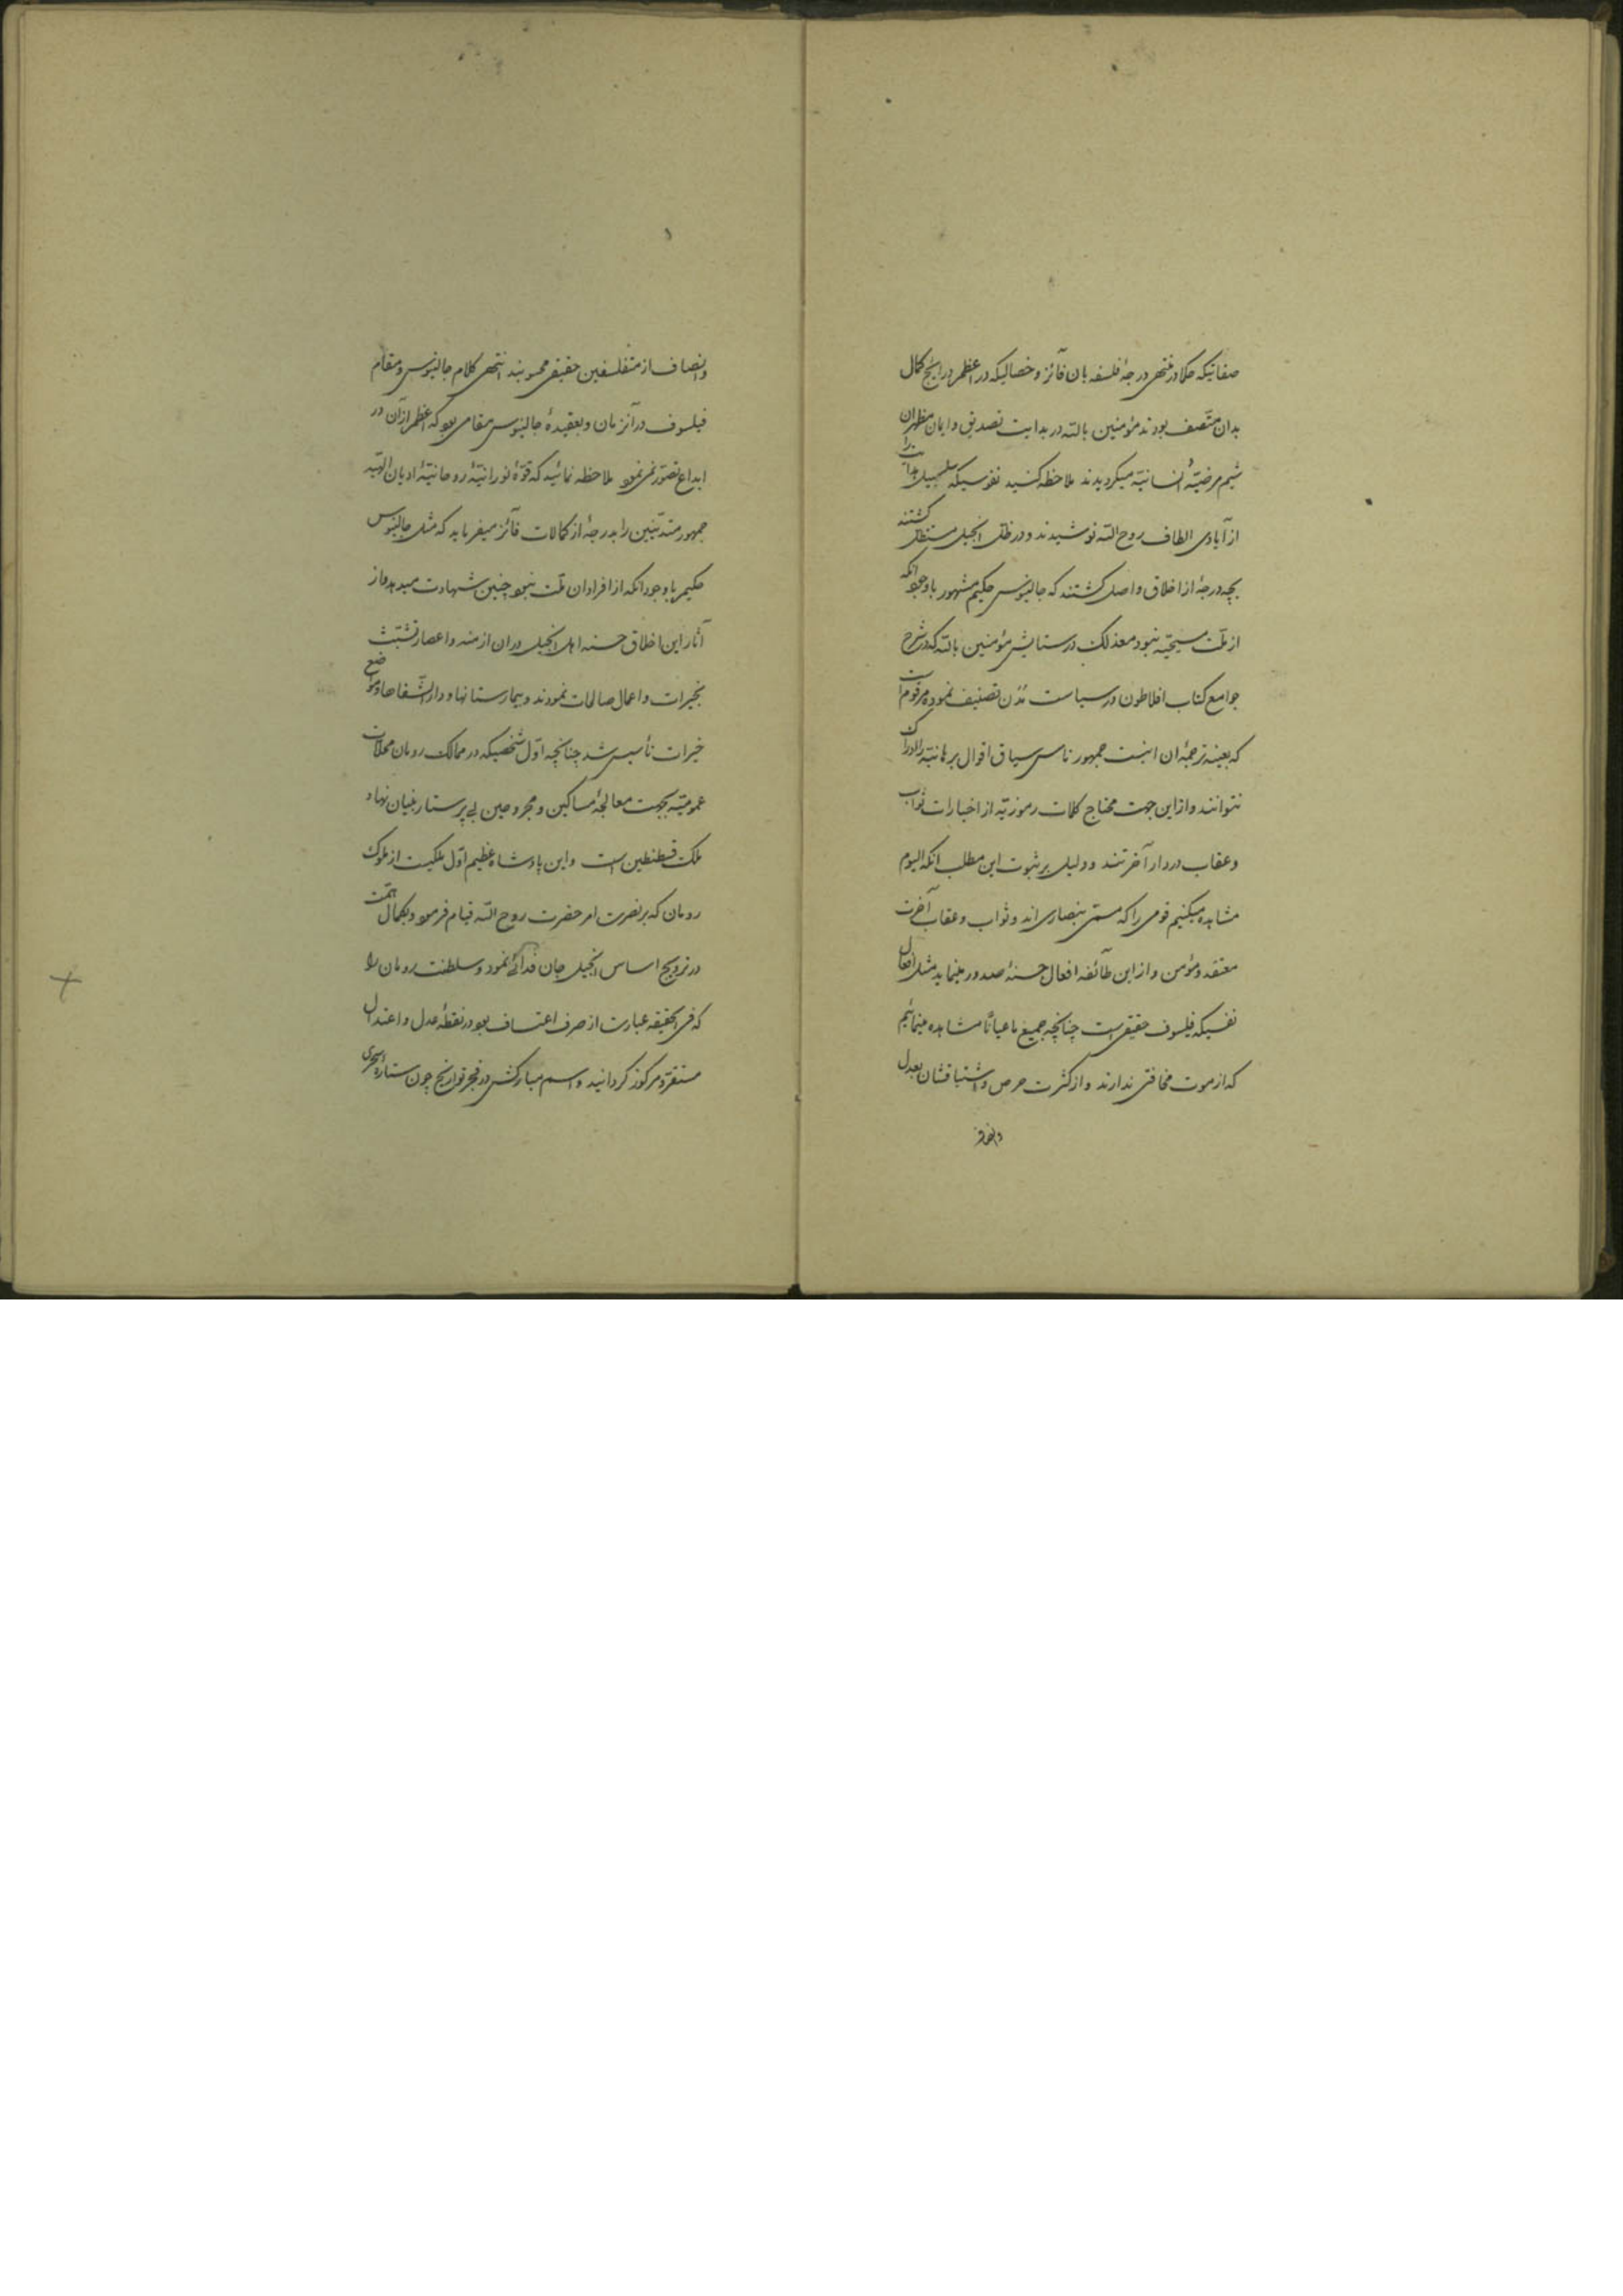 صفاتیکه حکما در منتهی درجهٔ فلسفه بان فائز و خصالیکه در اعظم مدارج کمال
بدان متّصف بودند مؤمنین باللّه در بدایت تصدیق و ایمان مظهر ان
شیم مرضیّهٔ انسانیّه میگردیدند ملاحظه کنید نفوسیکه سلسبیل هدایت را
از آیادی الطاف روح اللّه نوشیدند و در ظلّ انجیل مستظلّ گشتند
بچه درجهٔ از اخلاق واصل گشتند که جالینوس حکیم مشهور با وجود انکه
از ملّت مسیحیّه نبود معذلک در ستایش مؤمنین باللّه که در شرح
جوامع کتاب افلاطون در سیاست مدن تصنیف نموده مرقوم است
که بعینه ترجمهٔ ان اینست جمهور ناس سیاق اقوال برهانیّه را ادراک
نتوانند و از این جهت محتاج کلمات رموزیّه از اخبارات ثواب
و عقاب در دار آخرتند و دلیل بر ثبوت این مطلب انکه الیوم
مشاهده میکنیم قومی را که مسمّی بنصاری اند و ثواب و عقاب آخرت
معتقد و مؤمن و از این طائفه افعال حسنهٔ صدور مینماید مثل افعال
نفسیکه فیلسوف حقیقی است چنانچه جمیع ما عیاناً مشاهده مینمائیم
که از موت مخافتی ندارند و از کثرت حرص و اشتیاقشان بعدل
و انصاف
و انصاف از متفلسفین حقیقی محسوبند انتهی کلام جالینوس و مقام
فیلسوف در آنزمان و بعقیدهٔ جالینوس مقامی بود که اعظم از آن در
ابداع تصوّر نمی نمود ملاحظه نمائید که قوّهٔ نورانیّهٔ روحانیّهٔ ادیان الهیّه
جمهور متدیّنین را بدرجهٔ از کمالات فائز میفرماید که مثل جالینوس
حکیم با وجود انکه از افراد ان ملّت نبود چنین شهادت میدهد و از
آثار این اخلاق حسنه اهل انجیل در ان ازمنه و اعصار تشبّث
بخیرات و اعمال صالحات نمودند و بیمارستانها و دار الشّفاها و مواضع
خیرات تأسیس شد چنانچه اوّل شخصیکه در ممالک رومان محلّات
عمومیّه بجهت معالجهٔ مساکین و مجروحین بی پرستار بنیان نهاد
ملک قسطنطین است و این پادشاه عظیم اوّل ملکیست از ملوک
رومان که بر نصرت امر حضرت روح اللّه قیام فرمود و بکمال همّت
در ترویج اساس انجیل جان فدائی نمود و سلطنت رومان را
که فی الحقیقه عبارت از صرف اعتساف بود در نقطهٔ عدل و اعتدال
مستقرّ و مرکوز گردانید و اسم مبارکش در فجر تواریخ چون ستارهٔ سحری